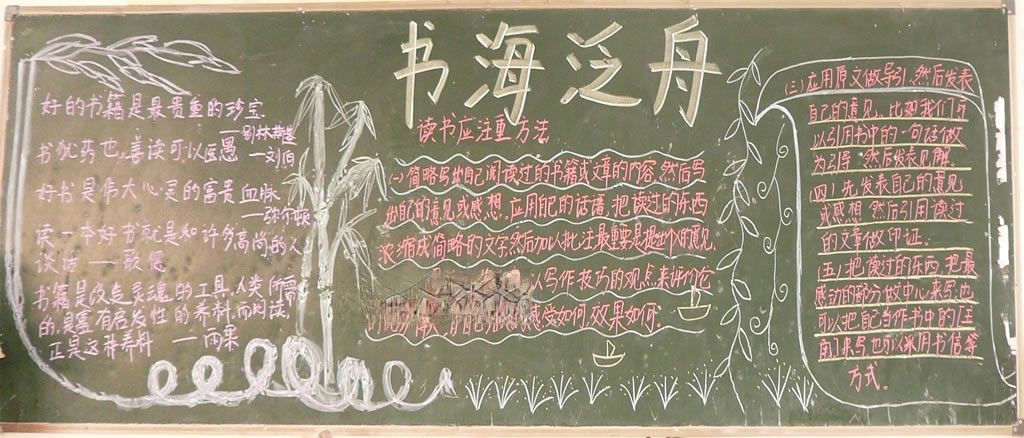 书海泛舟
好的书籍是最贵重的珍宝
——别林斯基
书犹药也,善读可以医愚 ——刘向
好书是伟大心灵的富贵血脉
——弥尔顿
读一本好书就是和许多高尚的人
谈话 ——歌德
书籍是改造灵魂的工具,人类所需
的,是富有启发性的养料,而阅读,
正是这种养料 ——雨果
读书应注重方法
(一)简略写出自己阅读过的书籍或文章的内容,然后写
出自己的意见或感想。应用自己的话语,把读过的东西
浓缩成简略的文字,然后加以批注,最重要是提出个人的意见
以写作技巧的观点来评价论
感受如何,效果如何。
(三)应用原文做导引,然后发表
自己的意见。比如我们可
以引用书中的一句话做
为引导,然后发表见解。
(四)先发表自己的意见
或感想,然后引用读过
的文章做印证。
(五)把读过的东西,把最
感动的部分做中心来写,也
可以把自己当作书中的主
角了来写,也可以采用书信等
方式。